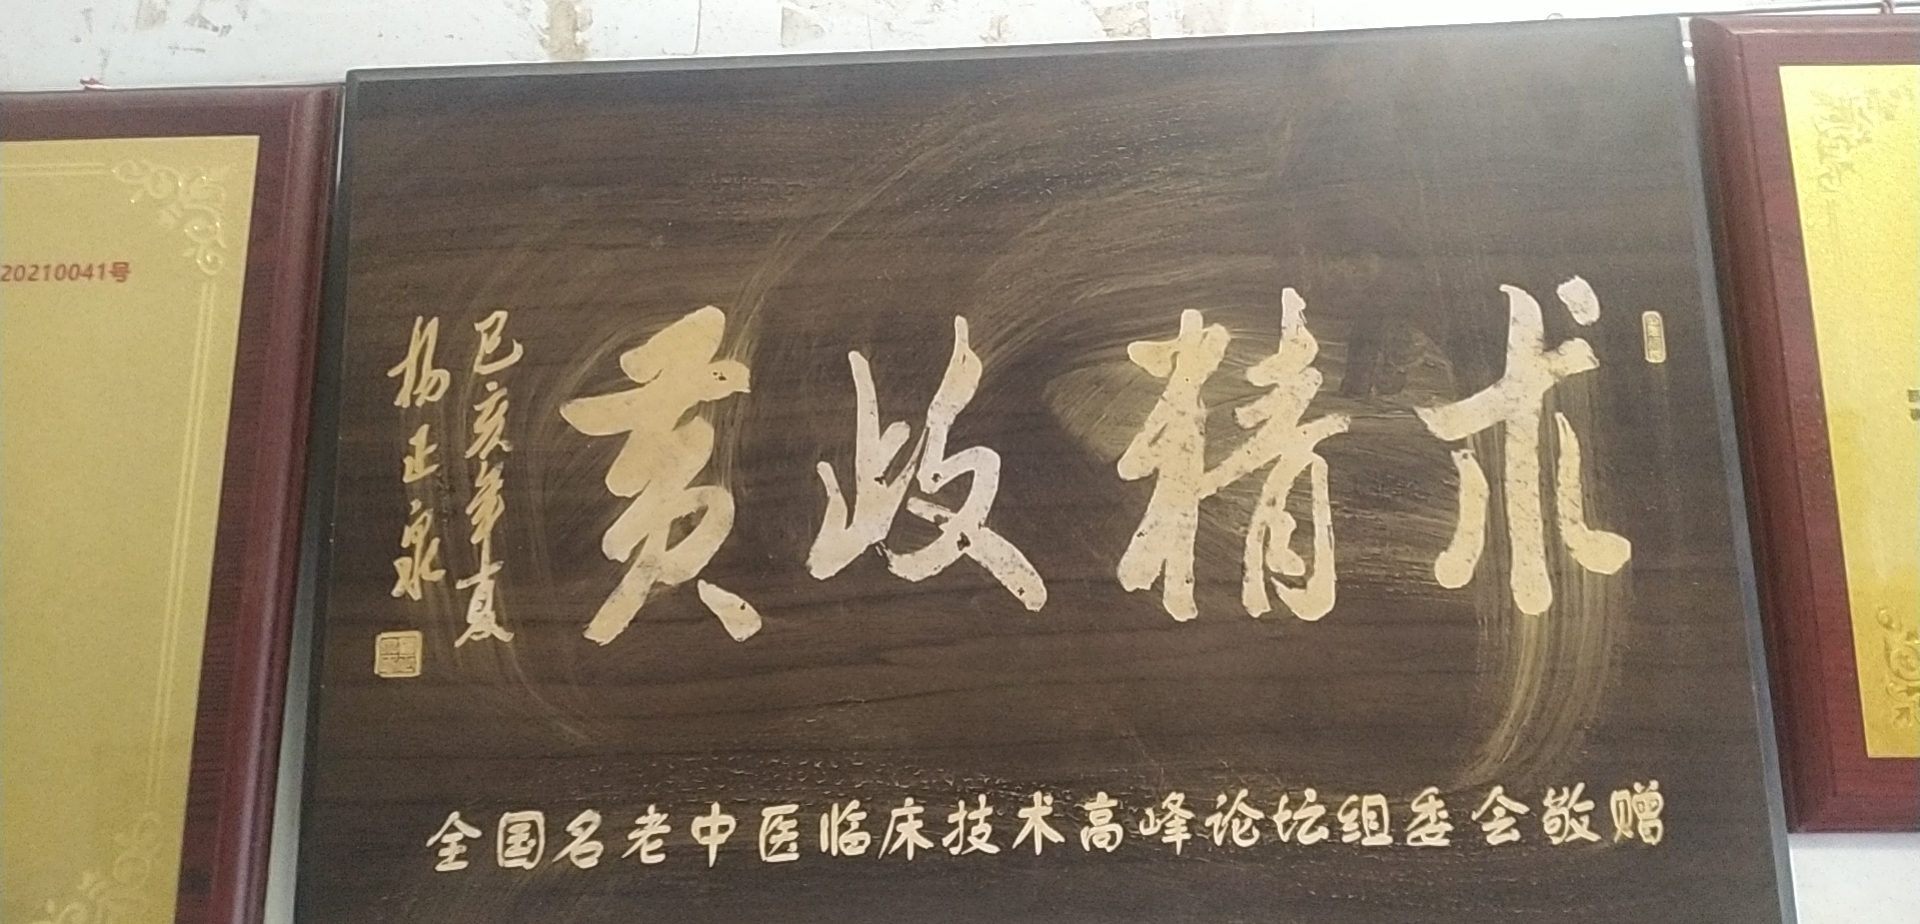 术精岐黄
己亥年夏
杨正泉
全国名老中医临床技术高峰论坛组委会敬赠
20210041号